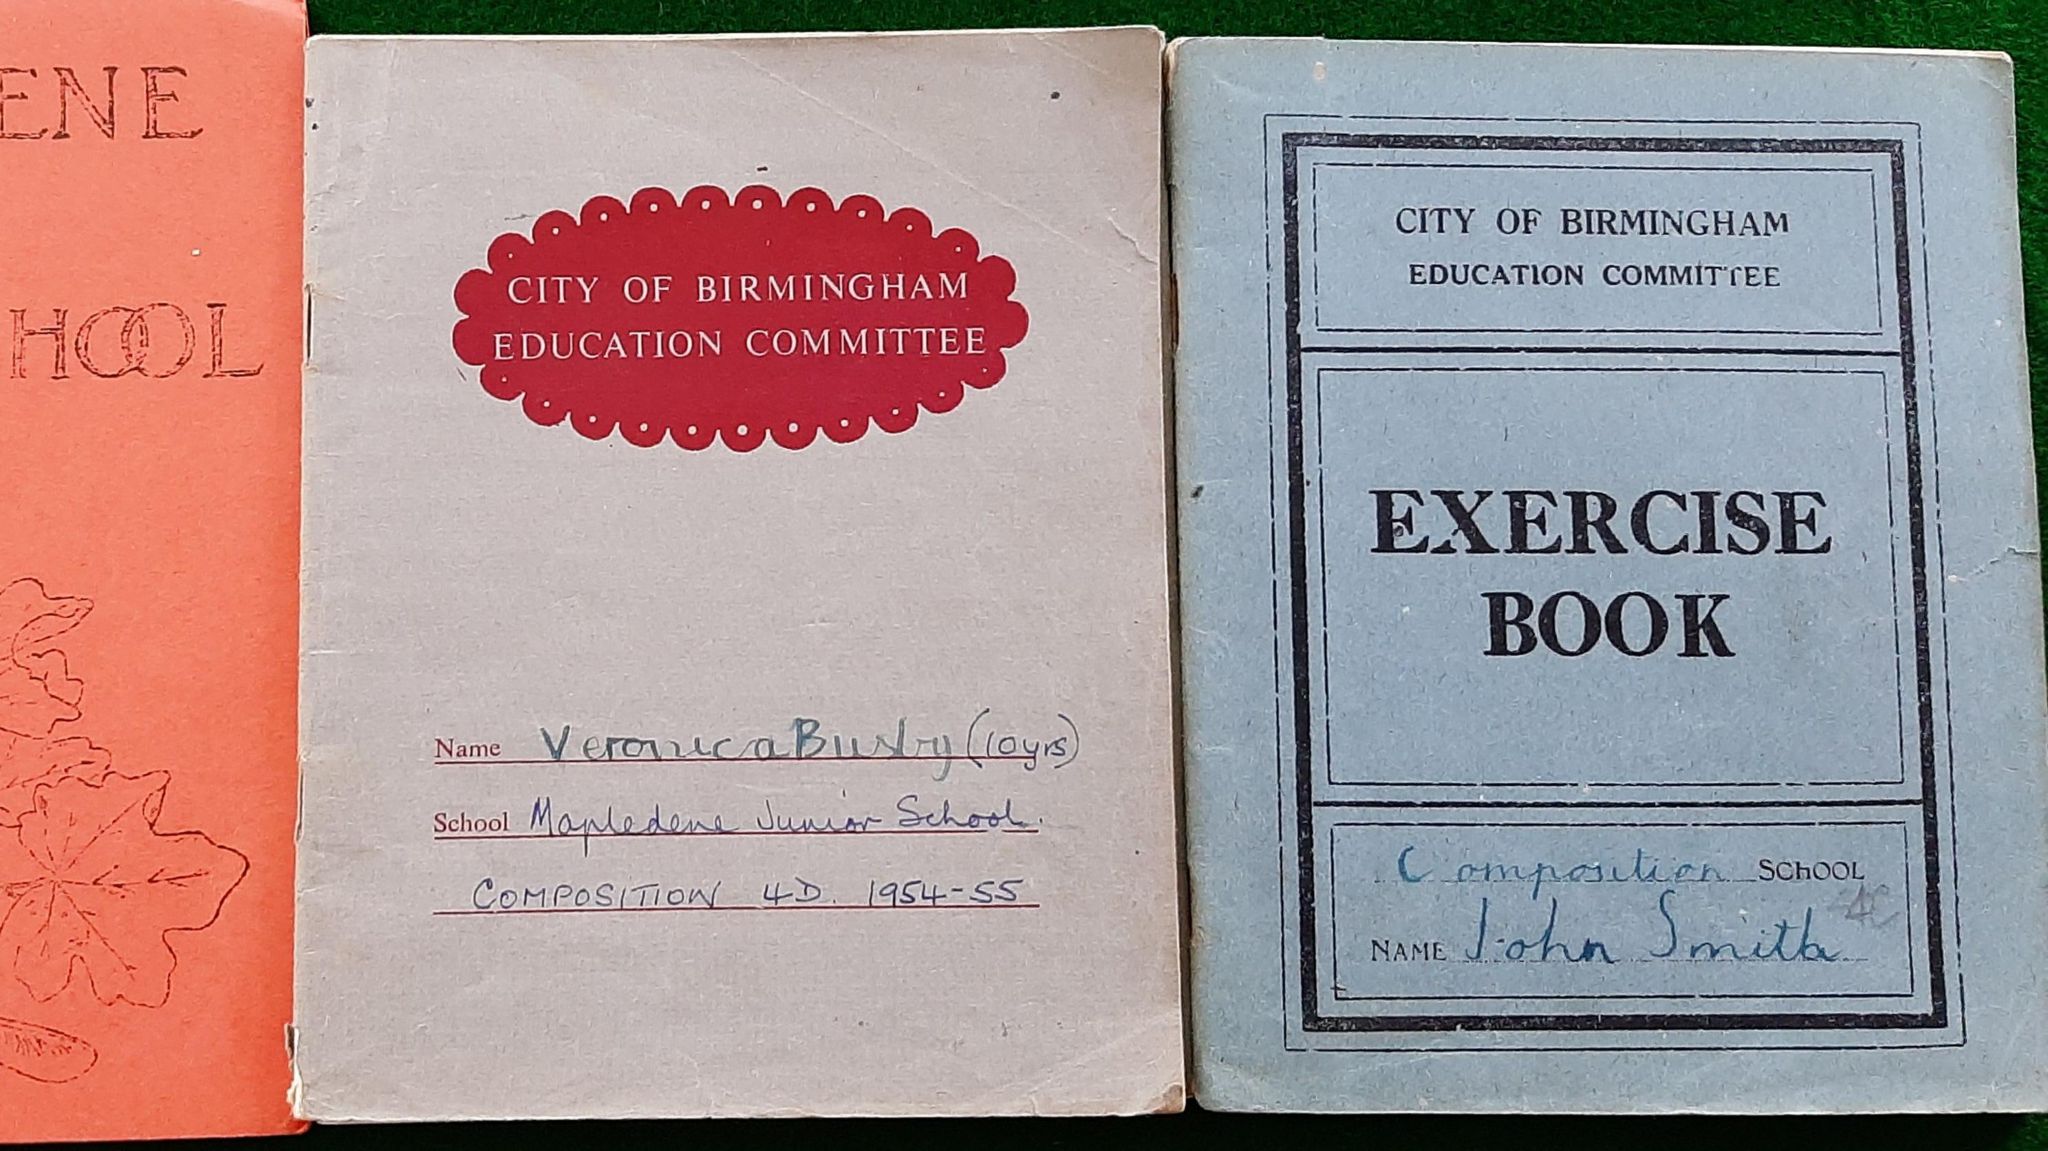 ENE
HOOL
CITY OF BIRMINGHAM
EDUCATION COMMITTEE
Name Veronica Busby (10yrs)
School Mapledene Junior School.
COMPOSITION 4D. 1954-55
CITY OF BIRMINGHAM
EDUCATION COMMITTEE
EXERCISE
BOOK
Composition SCHOOL
4C
NAME John Smith